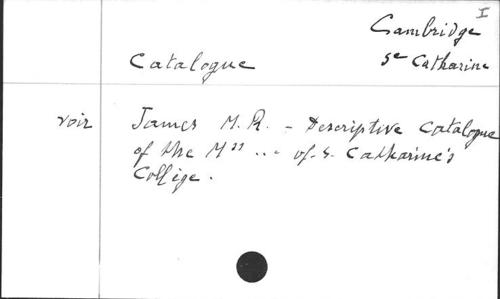 I
Cambridge
Se Catharine
Catalogue
voir James M. R. - Descriptive Catalogue
of the Mss ... of. S. Catharine's
College.